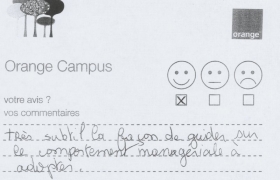 orange
Orange Campus
votre avis ?
vos commentaires
très subtil la façon de guider sur
le comportement managériale a
adopter.